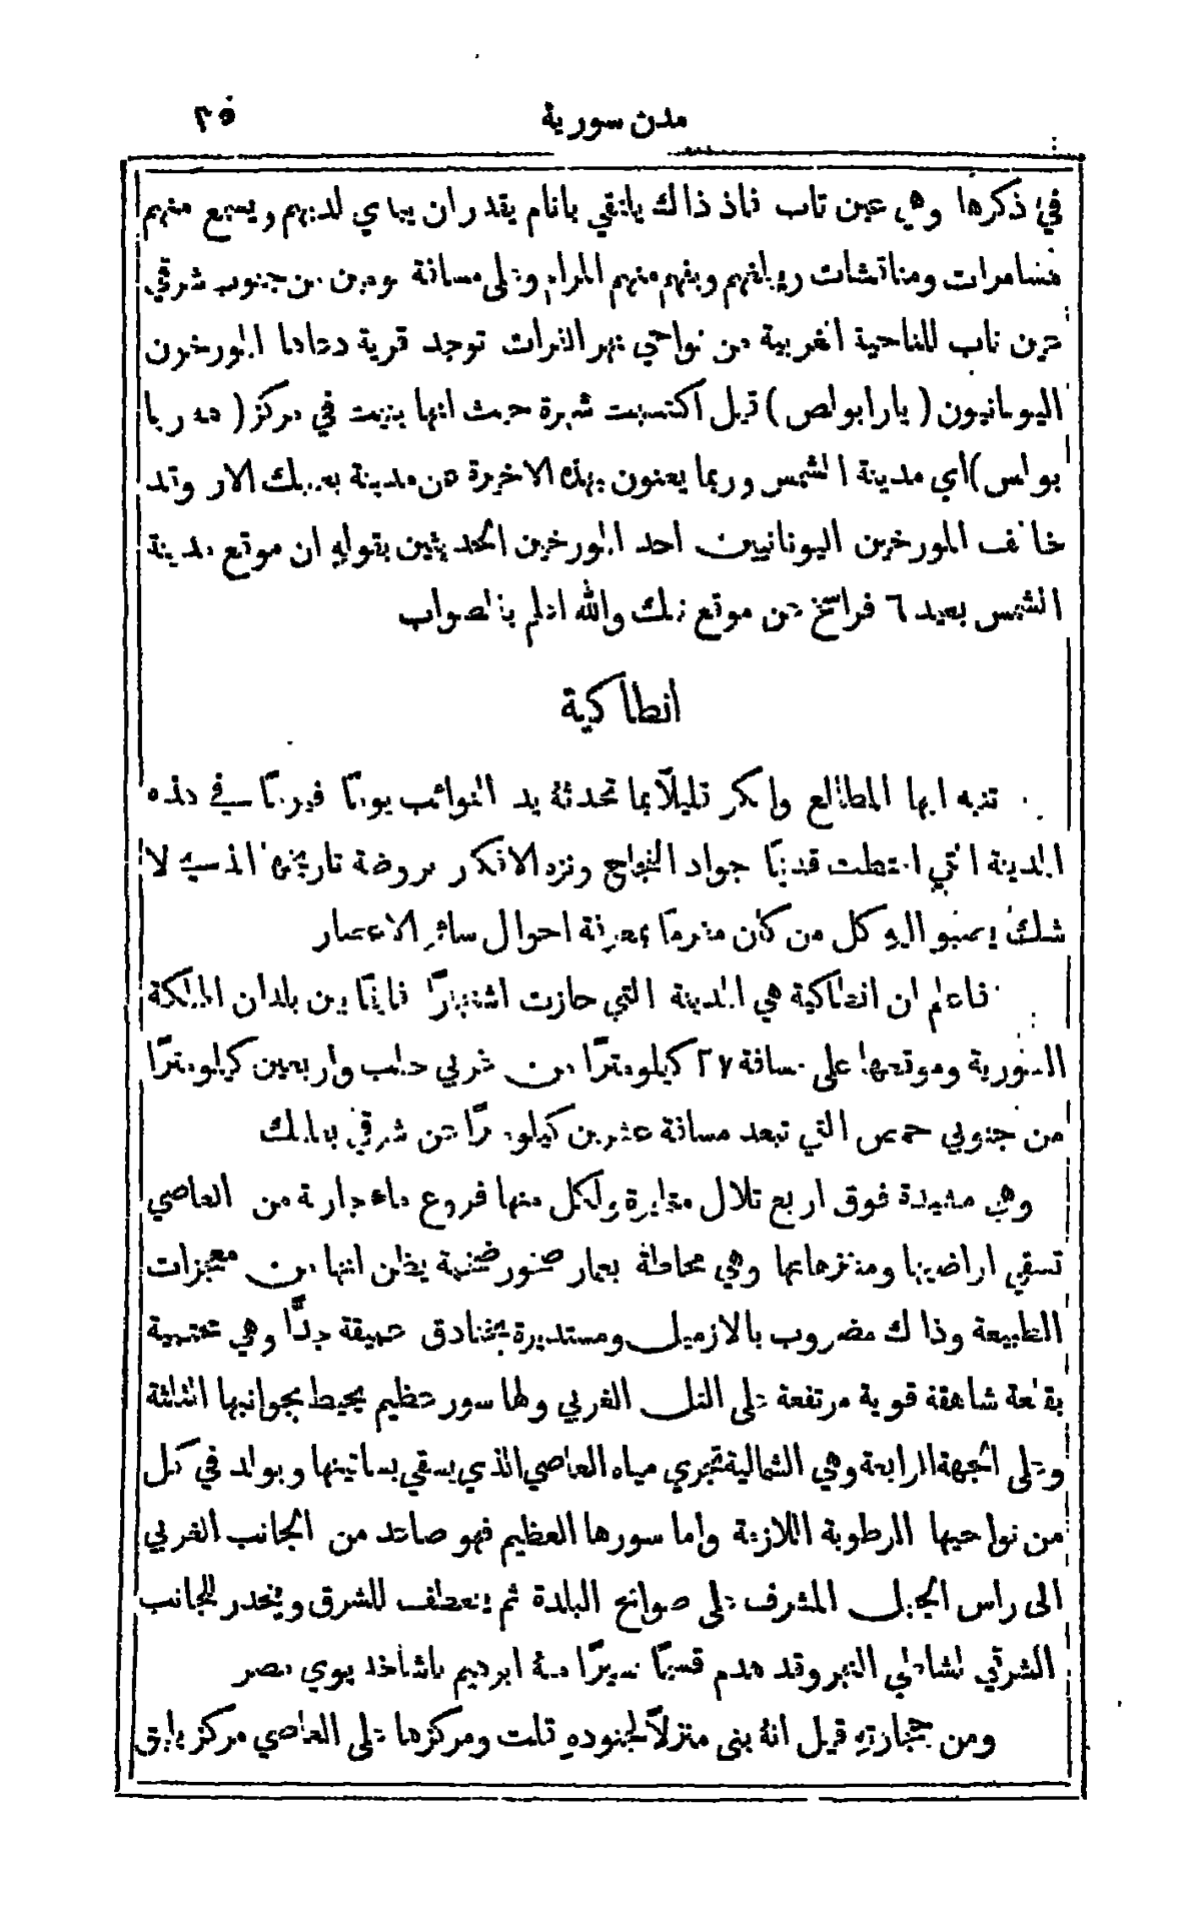 مدن سورية ٢٥
في ذكرها وهي عين تاب فاذ ذاك يلتقي بانام يقدر ان يباي لديهم ويسمع منهم
مسامرات ومناقشات رياضهم ويفهم منهم المرام وعلى مسافة يومين من جنوب شرقي
عين تاب للناحية الغربية من نواحي نهر الفرات توجد قرية دعاها المورخون
اليونانيون ( يارابولص ) قيل اكتسبت شهرة حيث انها بنيت في مركز (
بولس ) اي مدينة الشمس وربما يعنون بهذه الاخيرة عن مدينة بعلبك الان وقد
خالف المورخين اليونانيين احد المورخين الحديثين بقوله ان موقع مدينة
الشمس بعيد ٦ فراسخ عن موقع تلك والله اعلم بالصواب
انطاكية
تنبه ايها المطالع وافكر قليلاً بما تحدثه يد النوائب يوماً فيوماً في هذه
المدينة التي امتطت قديماً جواد النجاح ونزه الافكار بروضة تاريخها الذي لا
شك يصبو اليه كل من كان مغرماً بمعرفة احوال سائر الاعصار
فاعلم ان انطاكية هي المدينة التي حازت اشتهاراً فائقاً بين بلدان المملكة
السورية وموقعها على مسافة ٢٧ كيلومتراً من غربي حلب واربعين كيلومتراً
من جنوبي حمص التي تبعد مسافة عشرين كيلومتراً عن شرقي بعلبك
وهي مشيدة فوق اربع تلال متغايرة ولكل منها فروع ماء جارية من العاصي
تسقي اراضيها ومنتزهاتها وهي محاطة بعمار صخور ضخمة يظن انها من معجزات
الطبيعة وذاك مضروب بالازميل ومستديرة بخنادق عميقة جداً وهي محتمية
بقلعة شاهقة قوية مرتفعة على التل الغربي ولها سور عظيم يحيط بجوانبها الثلثة
وعلى الجهة الرابعة وهي الشمالية تجري مياه العاصي الذي يسقي بساتينها ويولد في كل
من نواحيها الرطوبة اللازمة واما سورها العظيم فهو صاعد من الجانب الغربي
الى راس الجبل المشرف على صوانح البلدة ثم ينعطف للشرق وينحدر للجانب
الشرقي لشاطي النهر وقد هدم قسماً كبيراً منه ابرهيم باشا خديوي مصر
ومن حجارته قيل انه بنى منزلاً لجنوده قلت ومركزها على العاصي مركز يليق